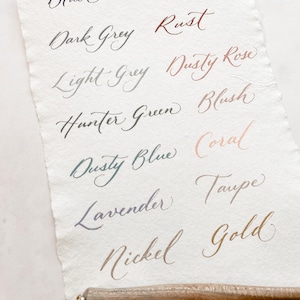 Dark Grey Rust
Light Grey Dusty Rose
Hunter Green Blush
Dusty Blue Coral
Lavender Taupe
Nickel Gold